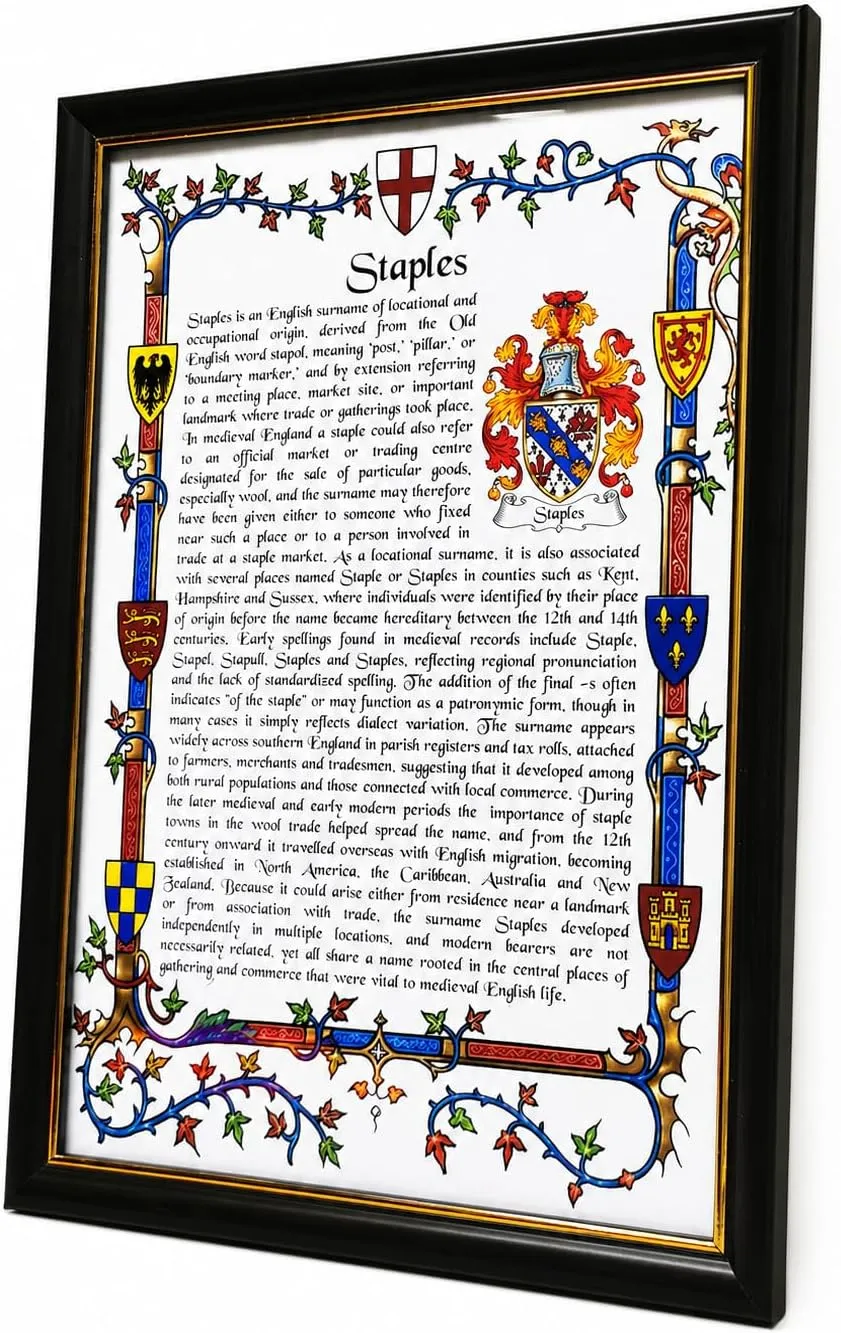 Staples
Staples is an English surname of locational and
occupational origin, derived from the Old
English word stapol, meaning 'post,' 'pillar,' or
'boundary marker,' and by extension referring
to a meeting place, market site, or important
landmark where trade or gatherings took place.
In medieval England a staple could also refer
to an official market or trading centre
designated for the sale of particular goods,
especially wool, and the surname may therefore
have been given either to someone who fixed
near such a place or to a person involved in
trade at a staple market. As a locational surname, it is also associated
with several places named Staple or Staples in counties such as Kent,
Hampshire and Sussex, where individuals were identified by their place
of origin before the name became hereditary between the 12th and 14th
centuries. Early spellings found in medieval records include Staple,
Stapel, Stapull, Staples and Staples, reflecting regional pronunciation
and the lack of standardized spelling. The addition of the final -s often
indicates "of the staple" or may function as a patronymic form, though in
many cases it simply reflects dialect variation. The surname appears
widely across southern England in parish registers and tax rolls, attached
to farmers, merchants and tradesmen, suggesting that it developed among
both rural populations and those connected with local commerce. During
the later medieval and early modern periods the importance of staple
towns in the wool trade helped spread the name, and from the 12th
century onward it travelled overseas with English migration, becoming
established in North America, the Caribbean, Australia and New
Zealand. Because it could arise either from residence near a landmark
or from association with trade, the surname Staples developed
independently in multiple locations, and modern bearers are not
necessarily related, yet all share a name rooted in the central places of
gathering and commerce that were vital to medieval English life.
Staples